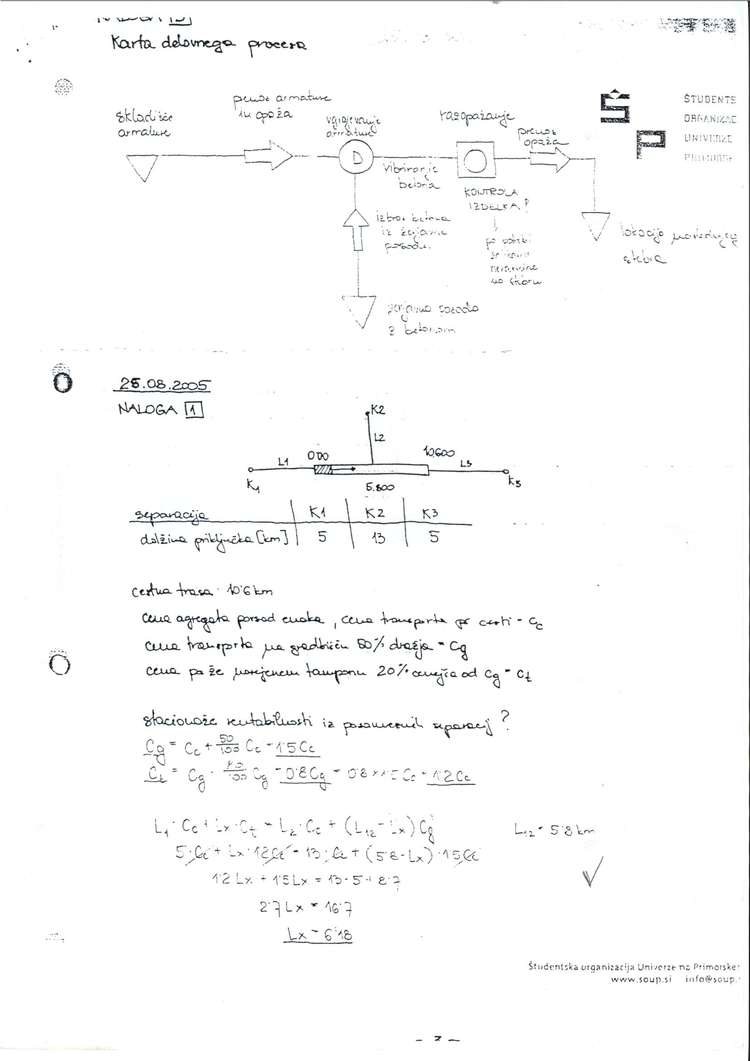 Karta delovnega procesa
ŠTUDENTS
ORGANIZAC
UNIVERZE
PRIMORSK
Š
P
skladišče armature
prenos armature in opaža
vgrajevanje armature
D
vibriranje betona
razopaženje
prenos opaža
KONTROLA IZDELKA?
po potrebi
lokacija naslednjega stebra
iz žerjavne posode
žerjavna posoda z betonom
25.08.2005
NALOGA 1
K2
L2
L1 0.00 10.600 L3
K1 5.800 K3
separacija K1 K2 K3
dolžina priključka [km] 5 13 5
cestna trasa: 10'6 km
cena agregata povsod enaka, cena transporta po cesti - Cc
cena transporta na gradbišču 50% dražja - Cg
cena po že narejenem tamponu 20% cenejša od Cg - Ct
stacionaže rentabilnosti iz posameznih separacij?
Cg = Cc + 50/100 Cc = 1'5 Cc
Ct = Cg - 20/100 Cg = 0'8 Cg = 0'8 × 1'5 Cc = 1'2 Cc
L1·Cc + Lx·Ct = L2·Cc + (L12 - Lx) Cg L12 = 5'8 km
5·Cc + Lx·1'2Cc = 13·Cc + (5'8 - Lx)·1'5Cc
1'2 Lx + 1'5 Lx = 13 - 5 + 8'7
2'7 Lx = 16'7
Lx = 6'18
Študentska organizacija Univerze na Primorske
www.soup.si info@soup.
- 7 -